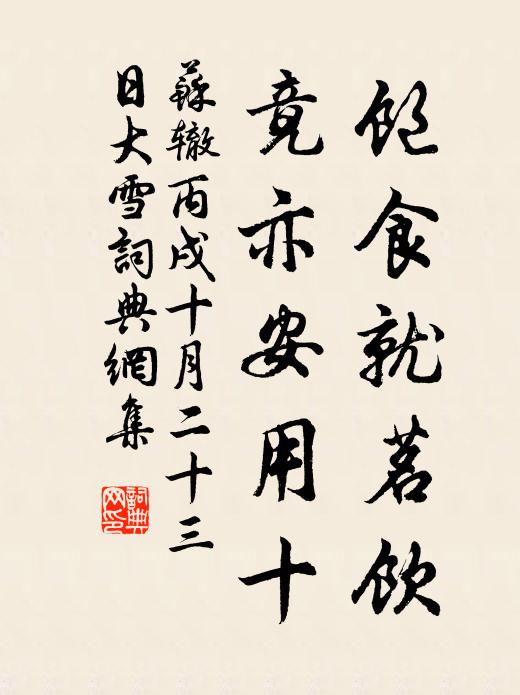 飽食就茗飲
竟亦安用十
蘇轍丙戌十月二十三
日大雪詞典網集
詞典
网印